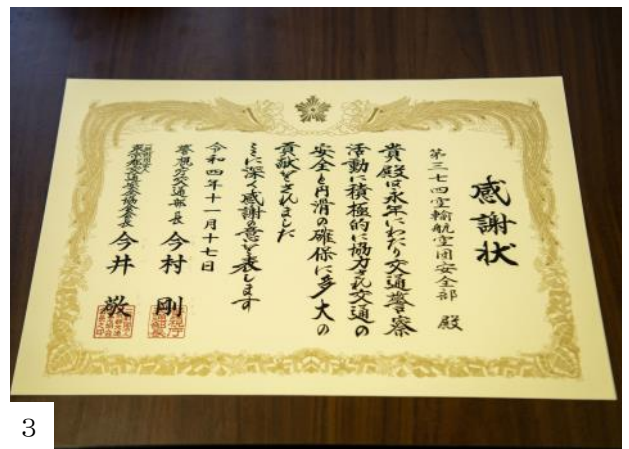 感謝状
第三七四空輸航空団安全部 殿
貴殿は永年にわたり交通警察
活動に積極的に協力され交通の
安全と円滑の確保に多大の
貢献をされました
ここに深く感謝の意を表します
令和四年十一月十七日
警視庁交通部長 今村 剛
東京都交通安全協会会長 今井 敬
3